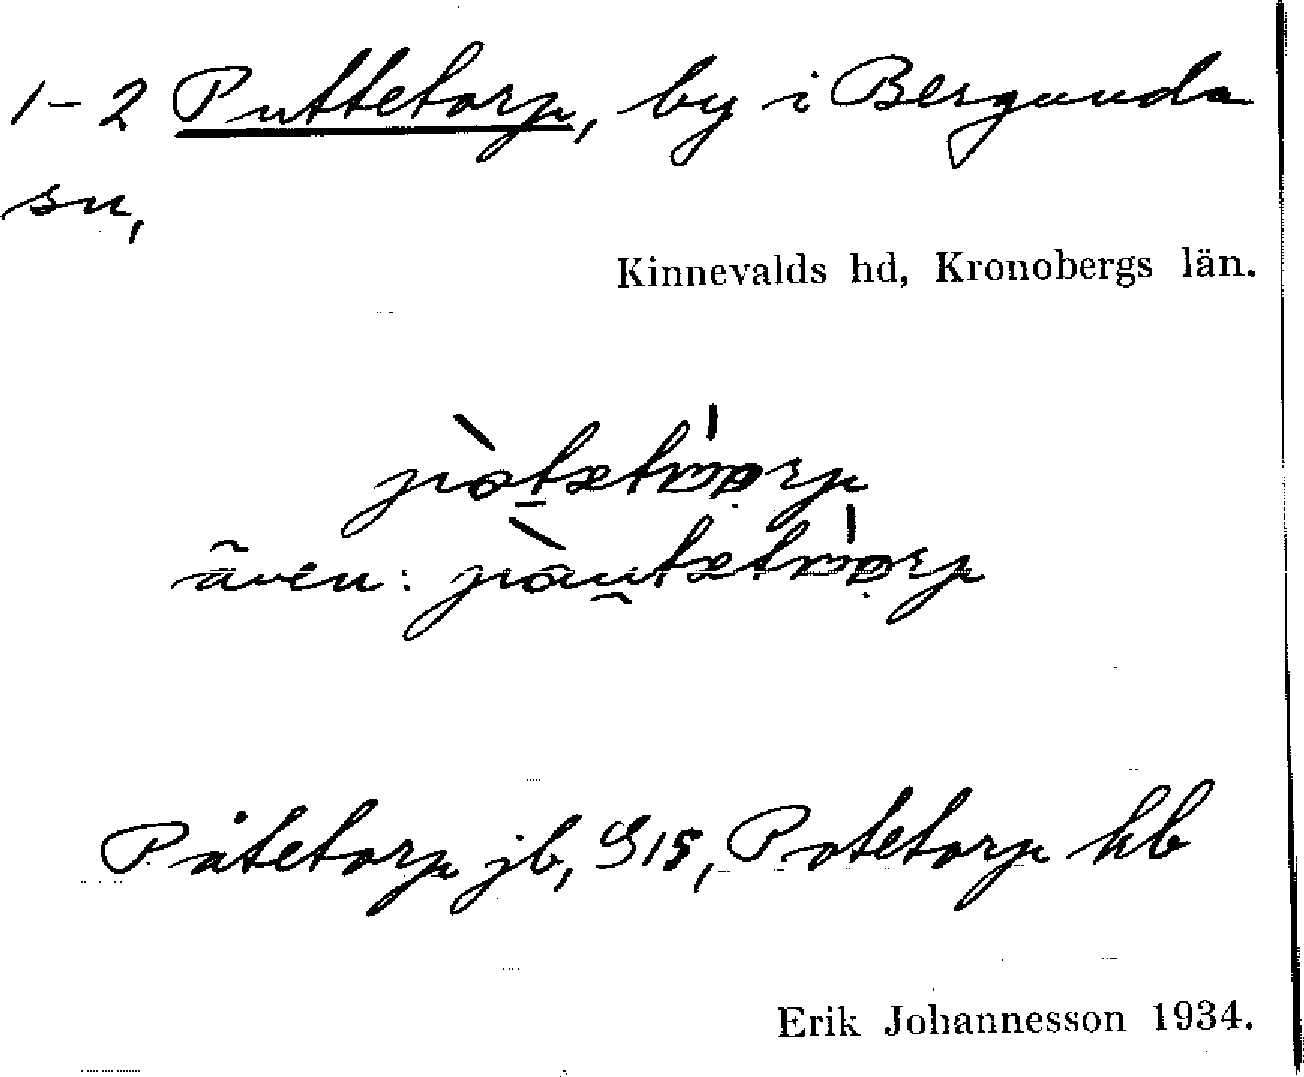 1-2 Puttetorp, by i Bergunda
sn,
Kinnevalds hd, Kronobergs län.
även:
Påtetorp jb, G15, Potetorp kb
Erik Johannesson 1934.